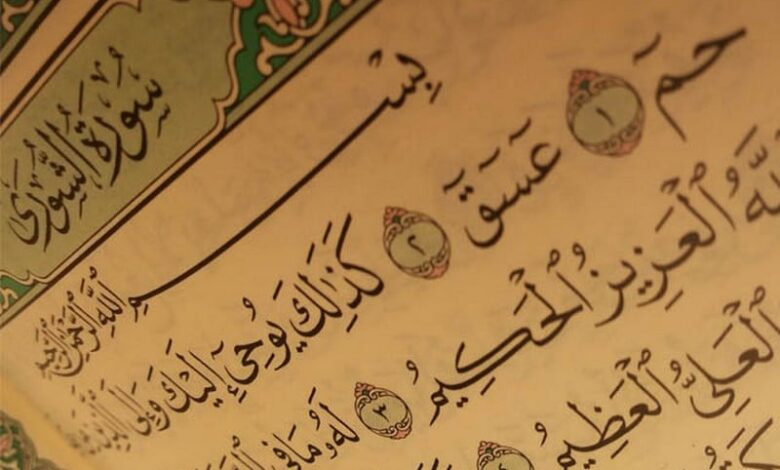 سُورَةُ الشُّورَىٰ
بِسْمِ اللَّهِ الرَّحْمَٰنِ الرَّحِيمِ
حمٓ ١ عٓسٓقٓ ٢ كَذَٰلِكَ يُوحِىٓ إِلَيْكَ وَإِلَى الَّذِينَ
ٱللَّهُ ٱلْعَزِيزُ ٱلْحَكِيمُ ٣ لَهُۥ مَا فِى
ٱلْعَلِىُّ ٱلْعَظِيمُ ٤